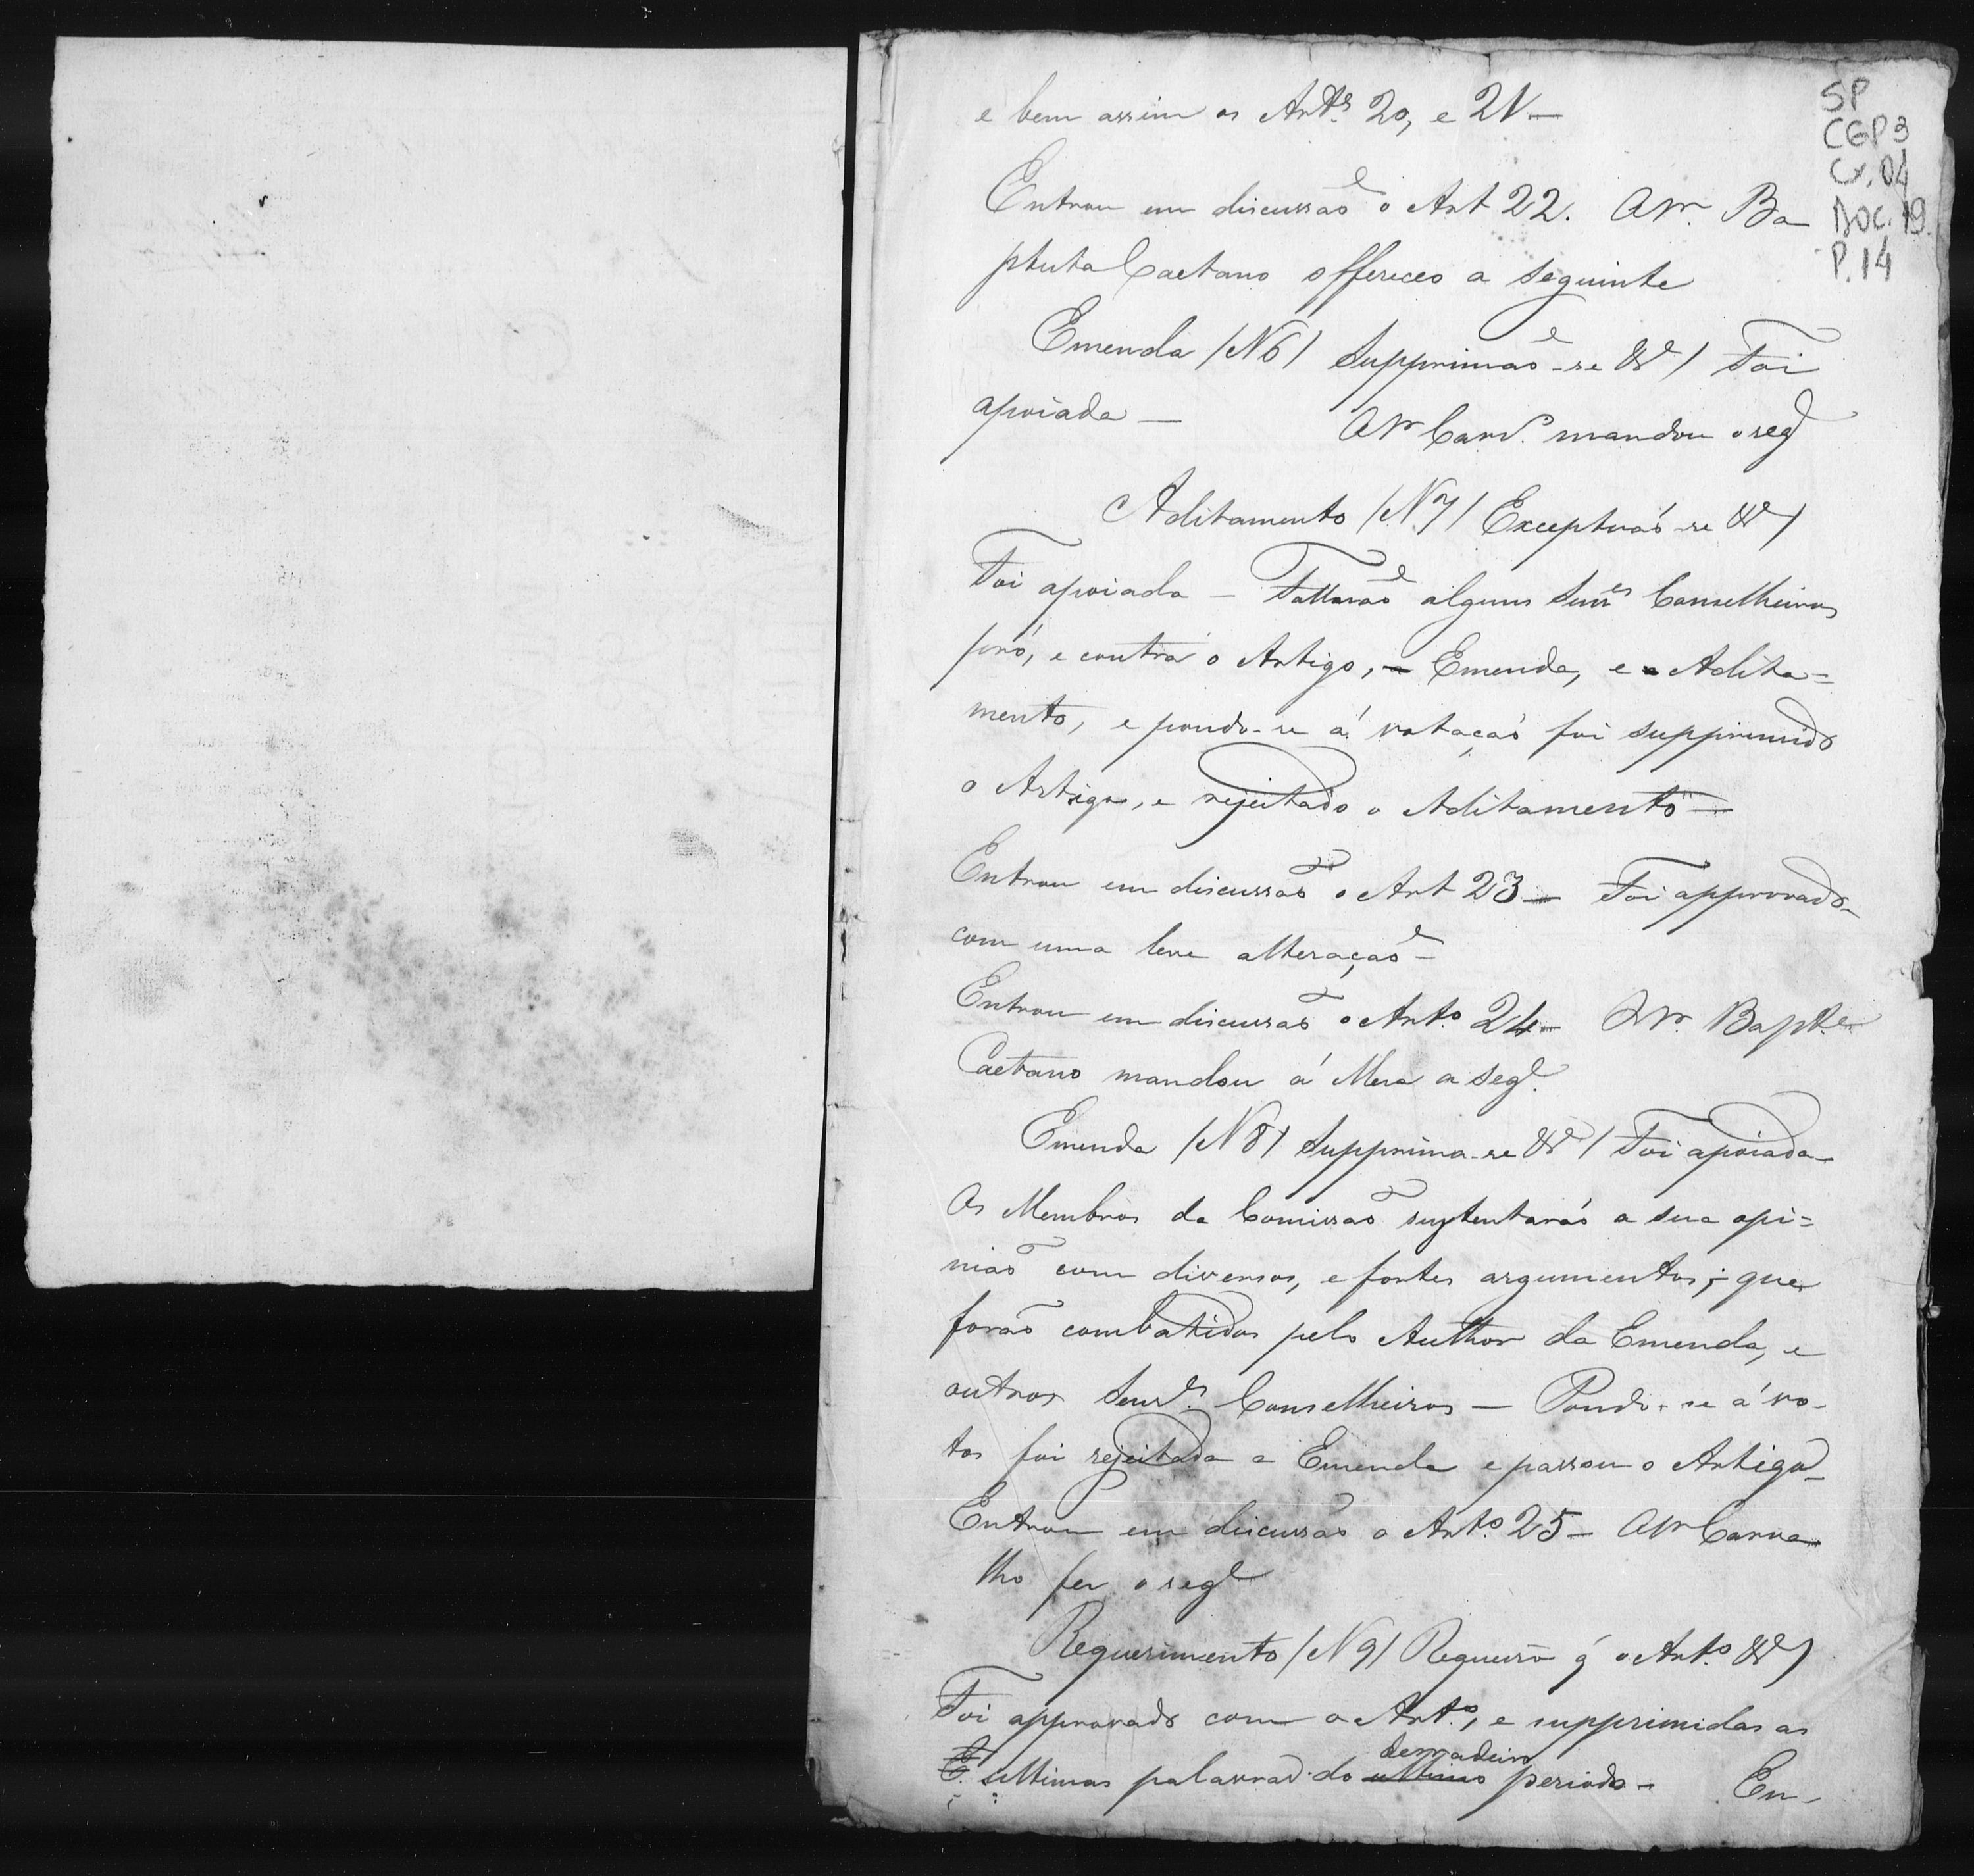 e bem assim os Art.ˢ 20, e 21 —
SP
CGP3
Cx. 04
DOC. 19.
P. 14
Entrou em discussaõ o Art 22. O Sr. Ba
ptista Caetano offereceo a seguinte
Emenda (N 6) Supprimaõ-se &ᵃ) Foi
apoiada — O Sr Carv.º mandou o seg
Aditamento (N. 7) Exceptuaõ-se &ᵃ)
Foi apoiada — Fallaraõ alguns Senr.ᵉˢ Conselheiros
pró, e contra o Artigo, Emenda, e Adita=
mento, e pondo-se á votaçaõ foi supprimido
o Artigo, e rejeitado o Aditamento —
Entrou em discussaõ o Art 23 — Foi approvado
com uma leve alteraçaõ —
Entrou em discussaõ o Art.º 24 — O Sr. Bapt.ᵃ
Caetano mandou á Mesa a seg.ᵉ
Emenda (N 8) Supprima-se &ᵃ) Foi apoiada —
Os Membros da Comissaõ sustentaraõ a sua opi=
niaõ com diversos, e fortes argumentos; que
foraõ combatidos pelo Author da Emenda, e
outros Senr.ᵉˢ Conselheiros — Pondo-se á vo-
tos foi rejeitada a Emenda e passou o Artigo —
Entrou em discussaõ o Art.º 25 — O Sr Carva
lho fez o seg.ᵉ
Requerimento (N 9) Requeiro q̃ o Art.º &ᵃ)
Foi approvado com o Art.º, e supprimidas as
ultimas palavras do ultimo derradeiro periodo — En-